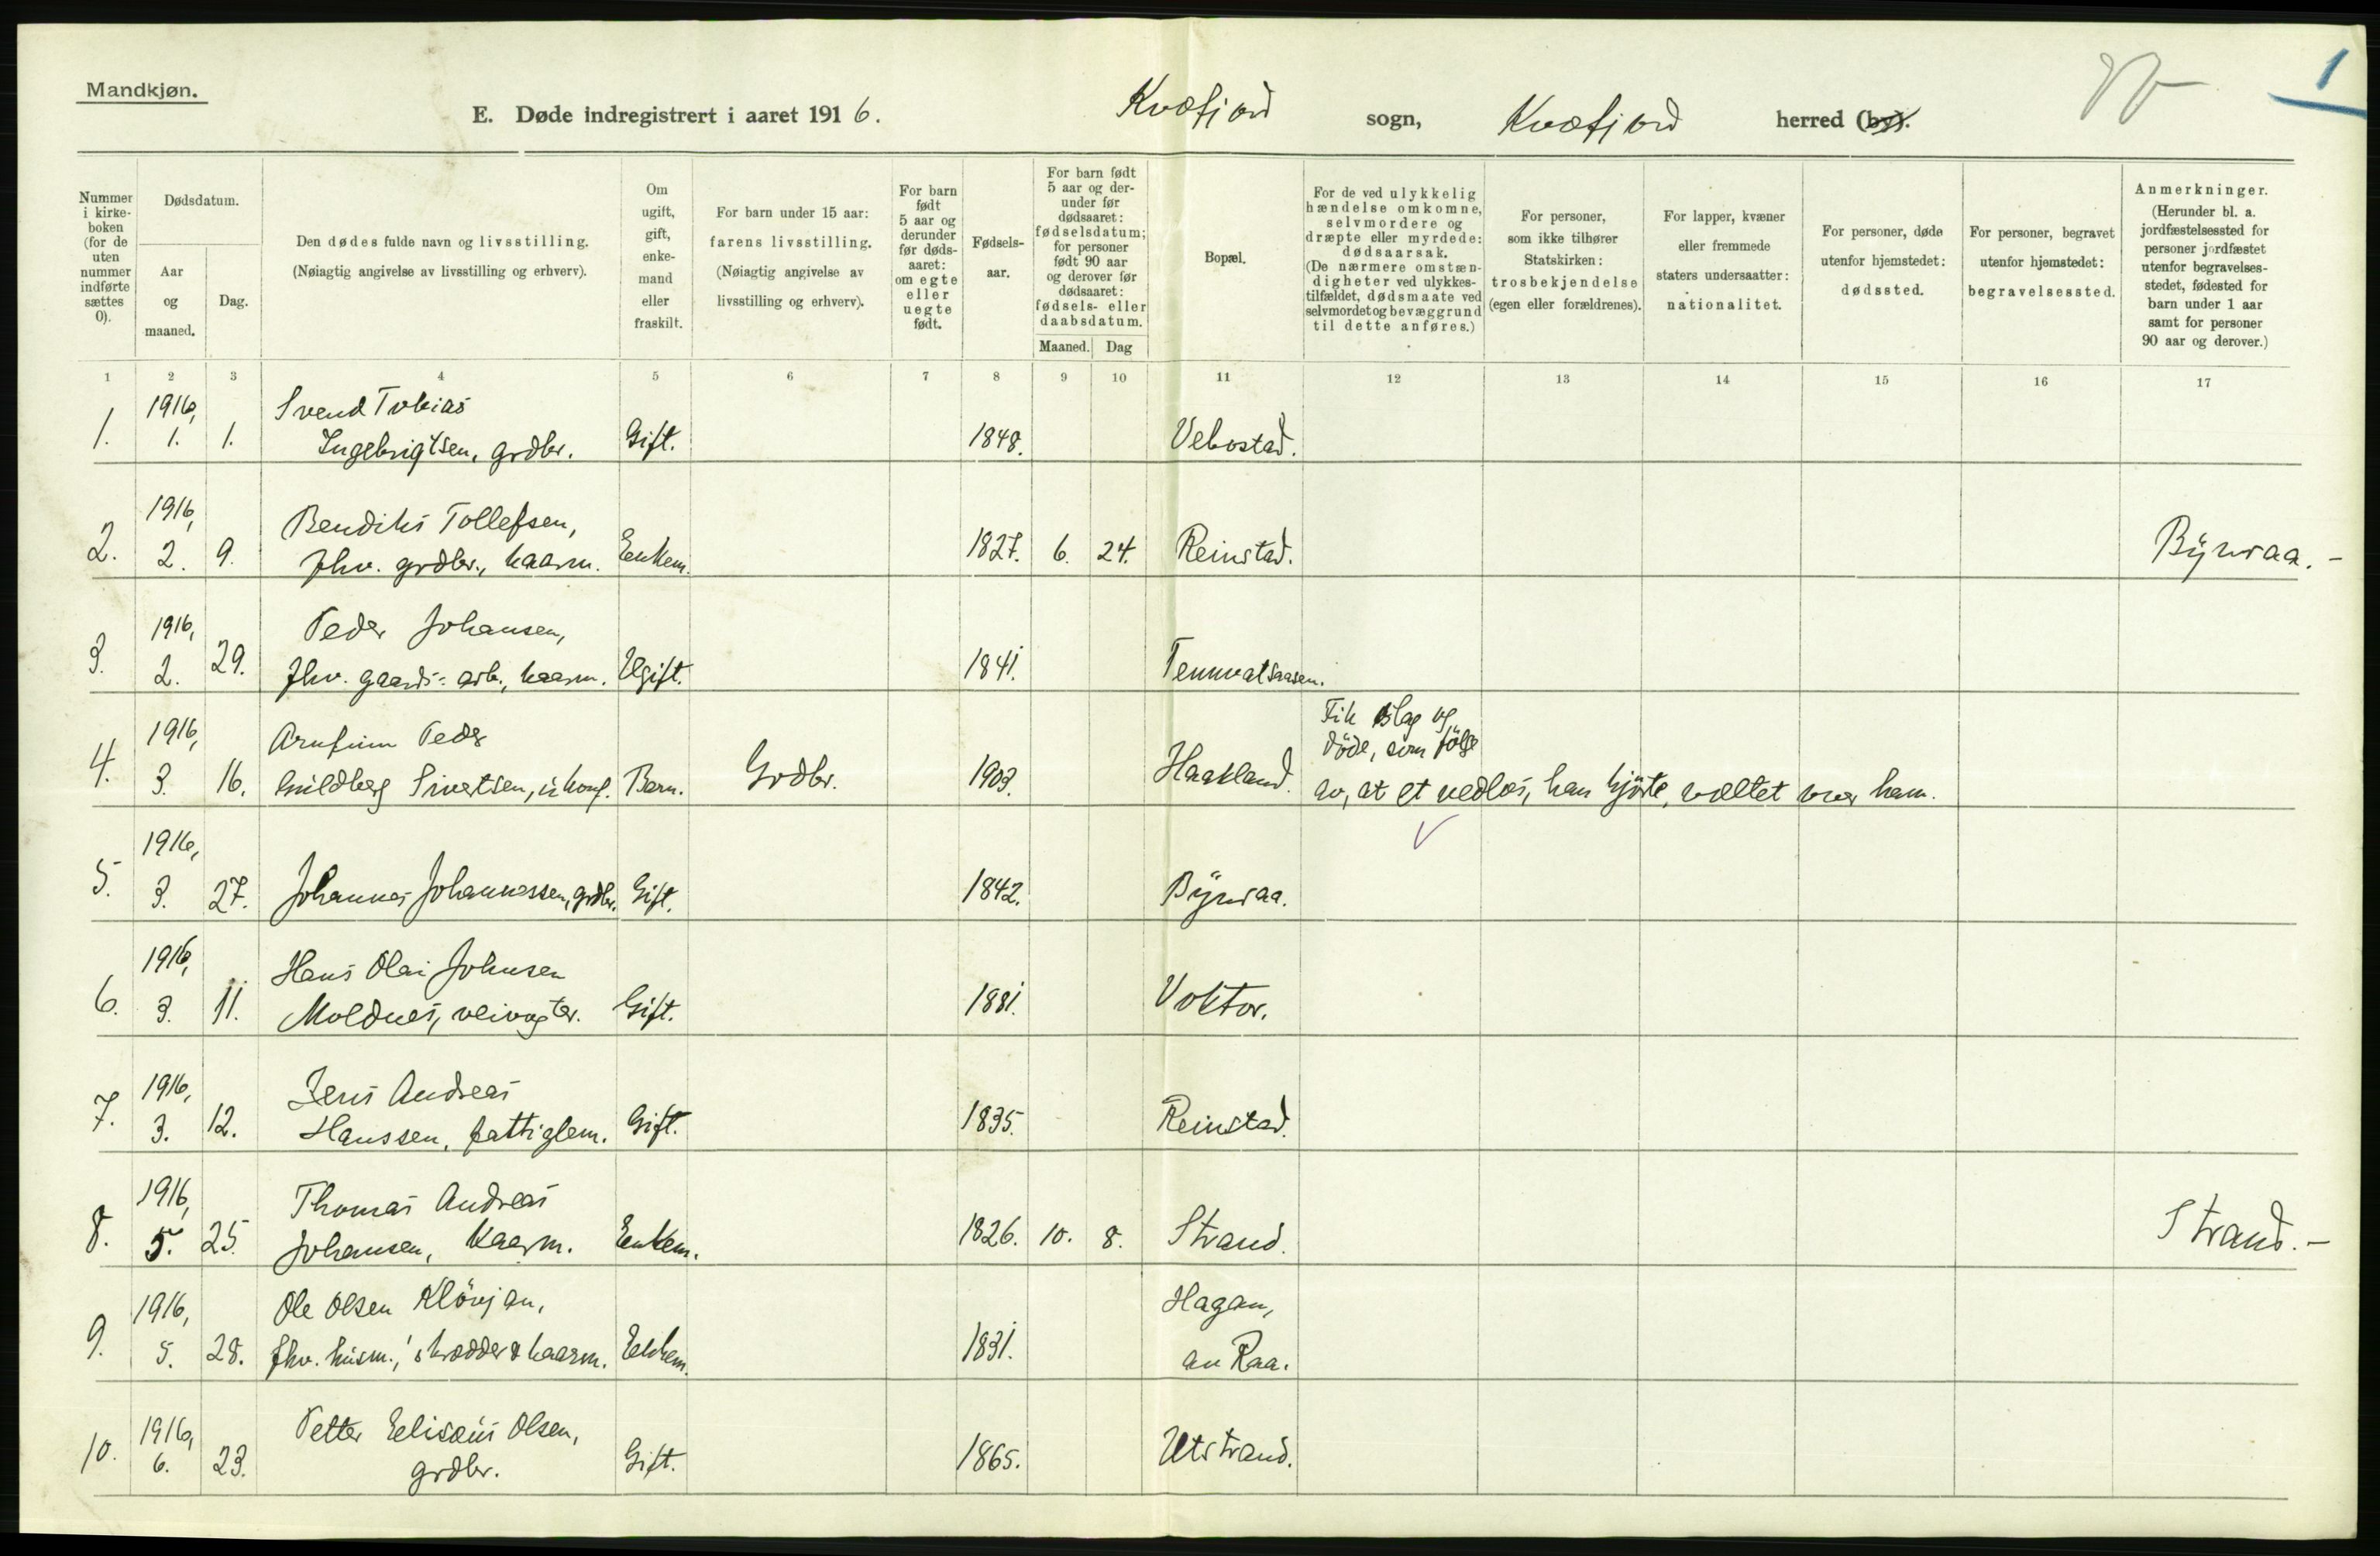 Mandkjøn.
E. Døde indregistrert i aaret 1916. Kvæfjord sogn, Kvæfjord herred (by).
1
Nummer i kirke-boken (for de uten nummer indførte sættes 0).
Dødsdatum.
Aar og maaned.
Dag.
Den dødes fulde navn og livsstilling.
(Nøiagtig angivelse av livsstilling og erhverv).
Om ugift, gift, enke-mand eller fraskilt.
For barn under 15 aar: farens livsstilling.
(Nøiagtig angivelse av livsstilling og erhverv).
For barn født 5 aar og derunder før døds-aaret: om egte eller uegte født.
Fødsels-aar.
For barn født 5 aar og der-under før dødsaaret: fødselsdatum; for personer født 90 aar og derover før dødsaaret: fødsels- eller daabsdatum.
Maaned. Dag
Bopæl.
For de ved ulykkelig hændelse omkomne, selvmordere og dræpte eller myrdede: dødsaarsak.
(De nærmere omstæn-digheter ved ulykkes-tilfældet, dødsmaate ved selvmordet og bevæggrund til dette anføres.)
For personer, som ikke tilhører Statskirken: trosbekjendelse (egen eller forældrenes).
For lapper, kvæner eller fremmede staters undersaatter: nationalitet.
For personer, døde utenfor hjemstedet: dødssted.
For personer, begravet utenfor hjemstedet: begravelsessted.
Anmerkninger.
(Herunder bl. a. jordfæstelsessted for personer jordfæstet utenfor begravelses-stedet, fødested for barn under 1 aar samt for personer 90 aar og derover.)
1 2 3 4 5 6 7 8 9 10 11 12 13 14 15 16 17
1. 1916, 1. 1. Svend Tobias
Ingebrigtsen, grdbr. Gift. 1848. Vebostad.
2. 1916, 2. 9. Bendiks Tollefsen,
fhv. grdbr., kaarm. Enkem. 1827. 6. 24. Reinstad. Bynraa. -
3. 1916, 2. 29. Peder Johansen,
fhv. gaards-arb., kaarm. Ugift. 1841. Tennvatsaasen.
4. 1916, 3. 16. Arnfinn Peder
Guldberg Sivertsen, ukonf. Barn. Grdbr. 1903. Haakland.
Fik slag og
døde, som følge
av, at et vedlas, han kjørte, væltet over ham.
5. 1916, 3. 27. Johannes Johannessen, grdbr. Gift. 1842. Bynraa.
6. 1916, 3. 11. Hans Olai Johnsen
Moldnes, veivogter. Gift. 1881. Voktor.
7. 1916, 3. 12. Jens Andreas
Hanssen, fattiglem. Gift. 1835. Reinstad.
8. 1916, 5. 25. Thomas Andreas
Johansen, kaarm. Enkem. 1826. 10. 8. Strand. Strand. -
9. 1916, 5. 28. Ole Olsen Kløvjan,
fhv. husm., skrædder & kaarm. Enkem. 1831. Hagan,
av Raa.
10. 1916, 6. 23. Petter Eelisæus Olsen,
grdbr. Gift. 1865. Utstrand.